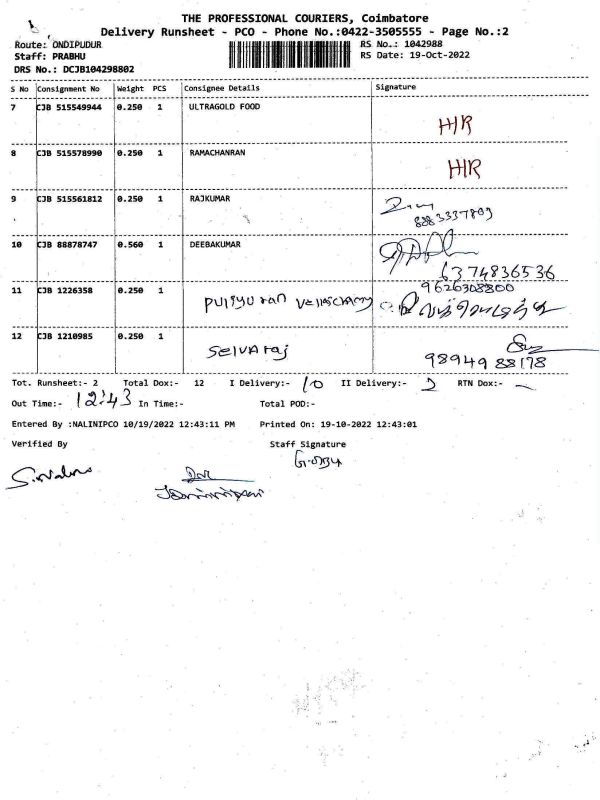 THE PROFESSIONAL COURIERS, Coimbatore
Delivery Runsheet - PCO - Phone No.:0422-3505555 - Page No.:2
Route: ONDIPUDUR RS No.: 1042988
Staff: PRABHU RS Date: 19-Oct-2022
DRS No.: DCJB104298802
S No Consignment No Weight PCS Consignee Details Signature
7 CJB 515549944 0.250 1 ULTRAGOLD FOOD
H/R
8 CJB 515578990 0.250 1 RAMACHANRAN
H/R
9 CJB 515561812 0.250 1 RAJKUMAR
8883337809
10 CJB 88878747 0.560 1 DEEBAKUMAR
6374836536
11 CJB 1226358 0.250 1 9626308800
Puliyuran Vellaichamy
12 CJB 1210985 0.250 1
Selvaraj
98949 88178
Tot. Runsheet:- 2 Total Dox:- 12 I Delivery:- 10 II Delivery:- 2 RTN Dox:- -
Out Time:- 12:43 In Time:- Total POD:-
Entered By :NALINIPCO 10/19/2022 12:43:11 PM Printed On: 19-10-2022 12:43:01
Verified By Staff Signature